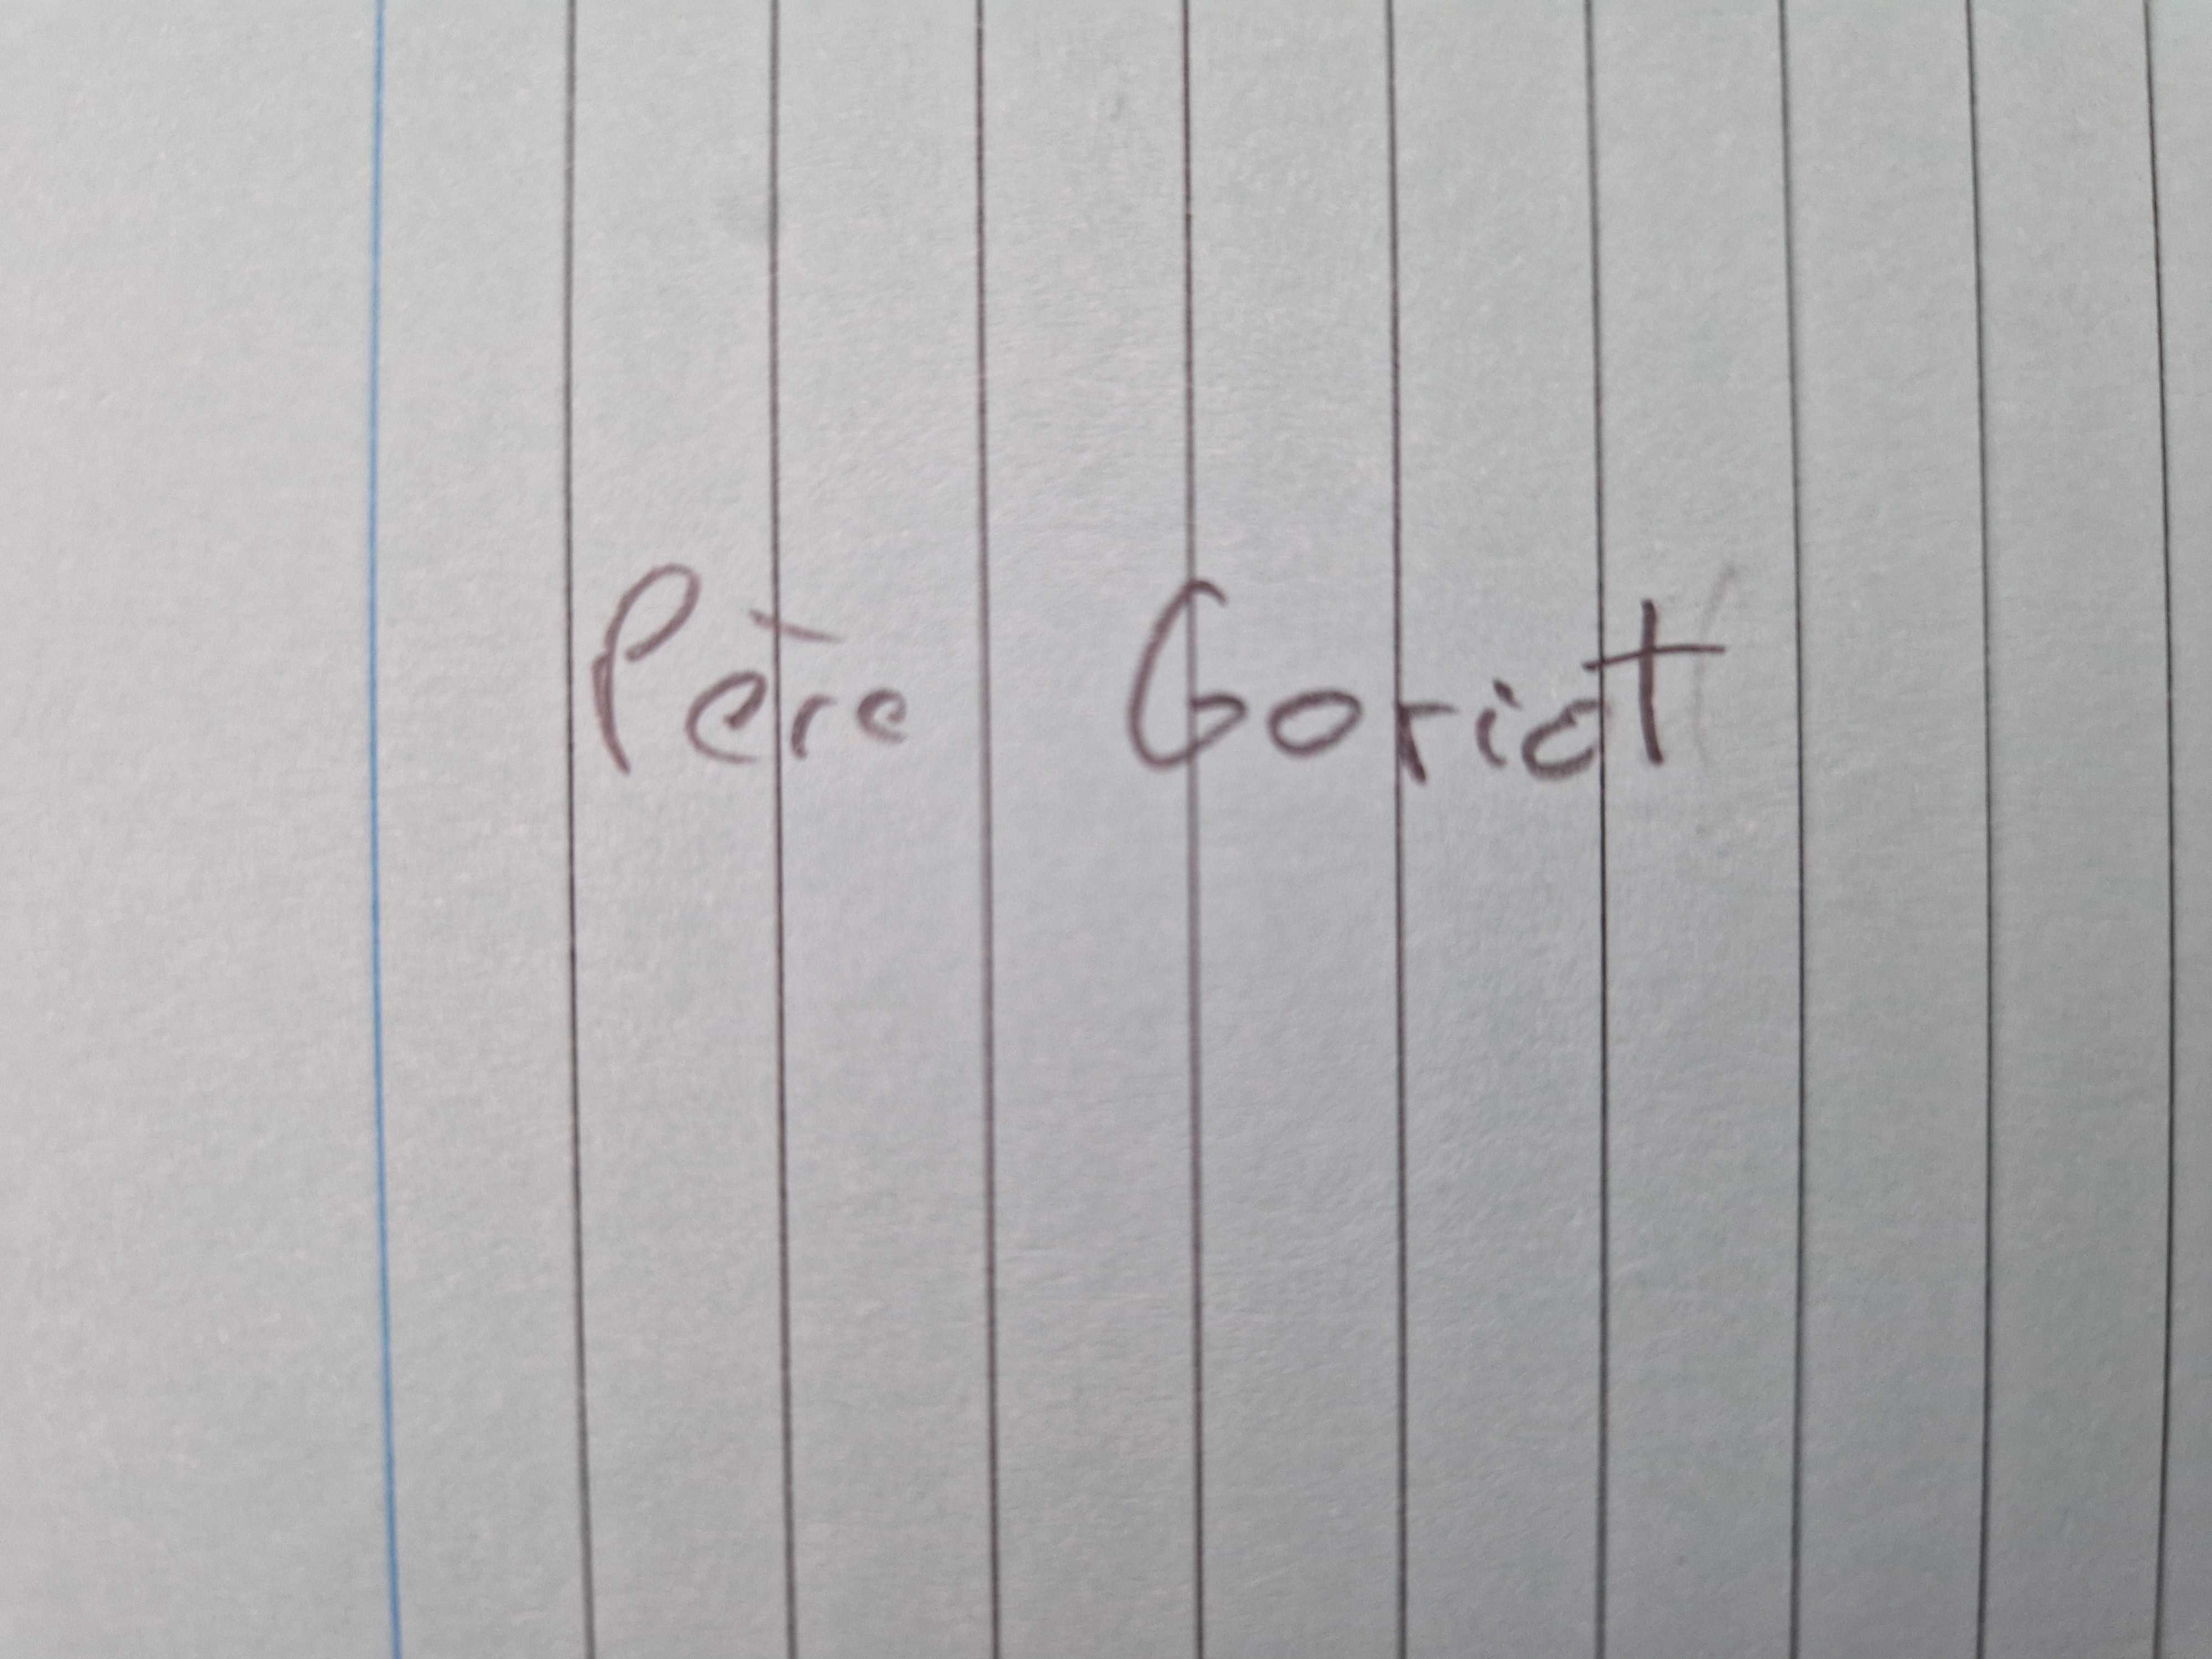 Père Goriot